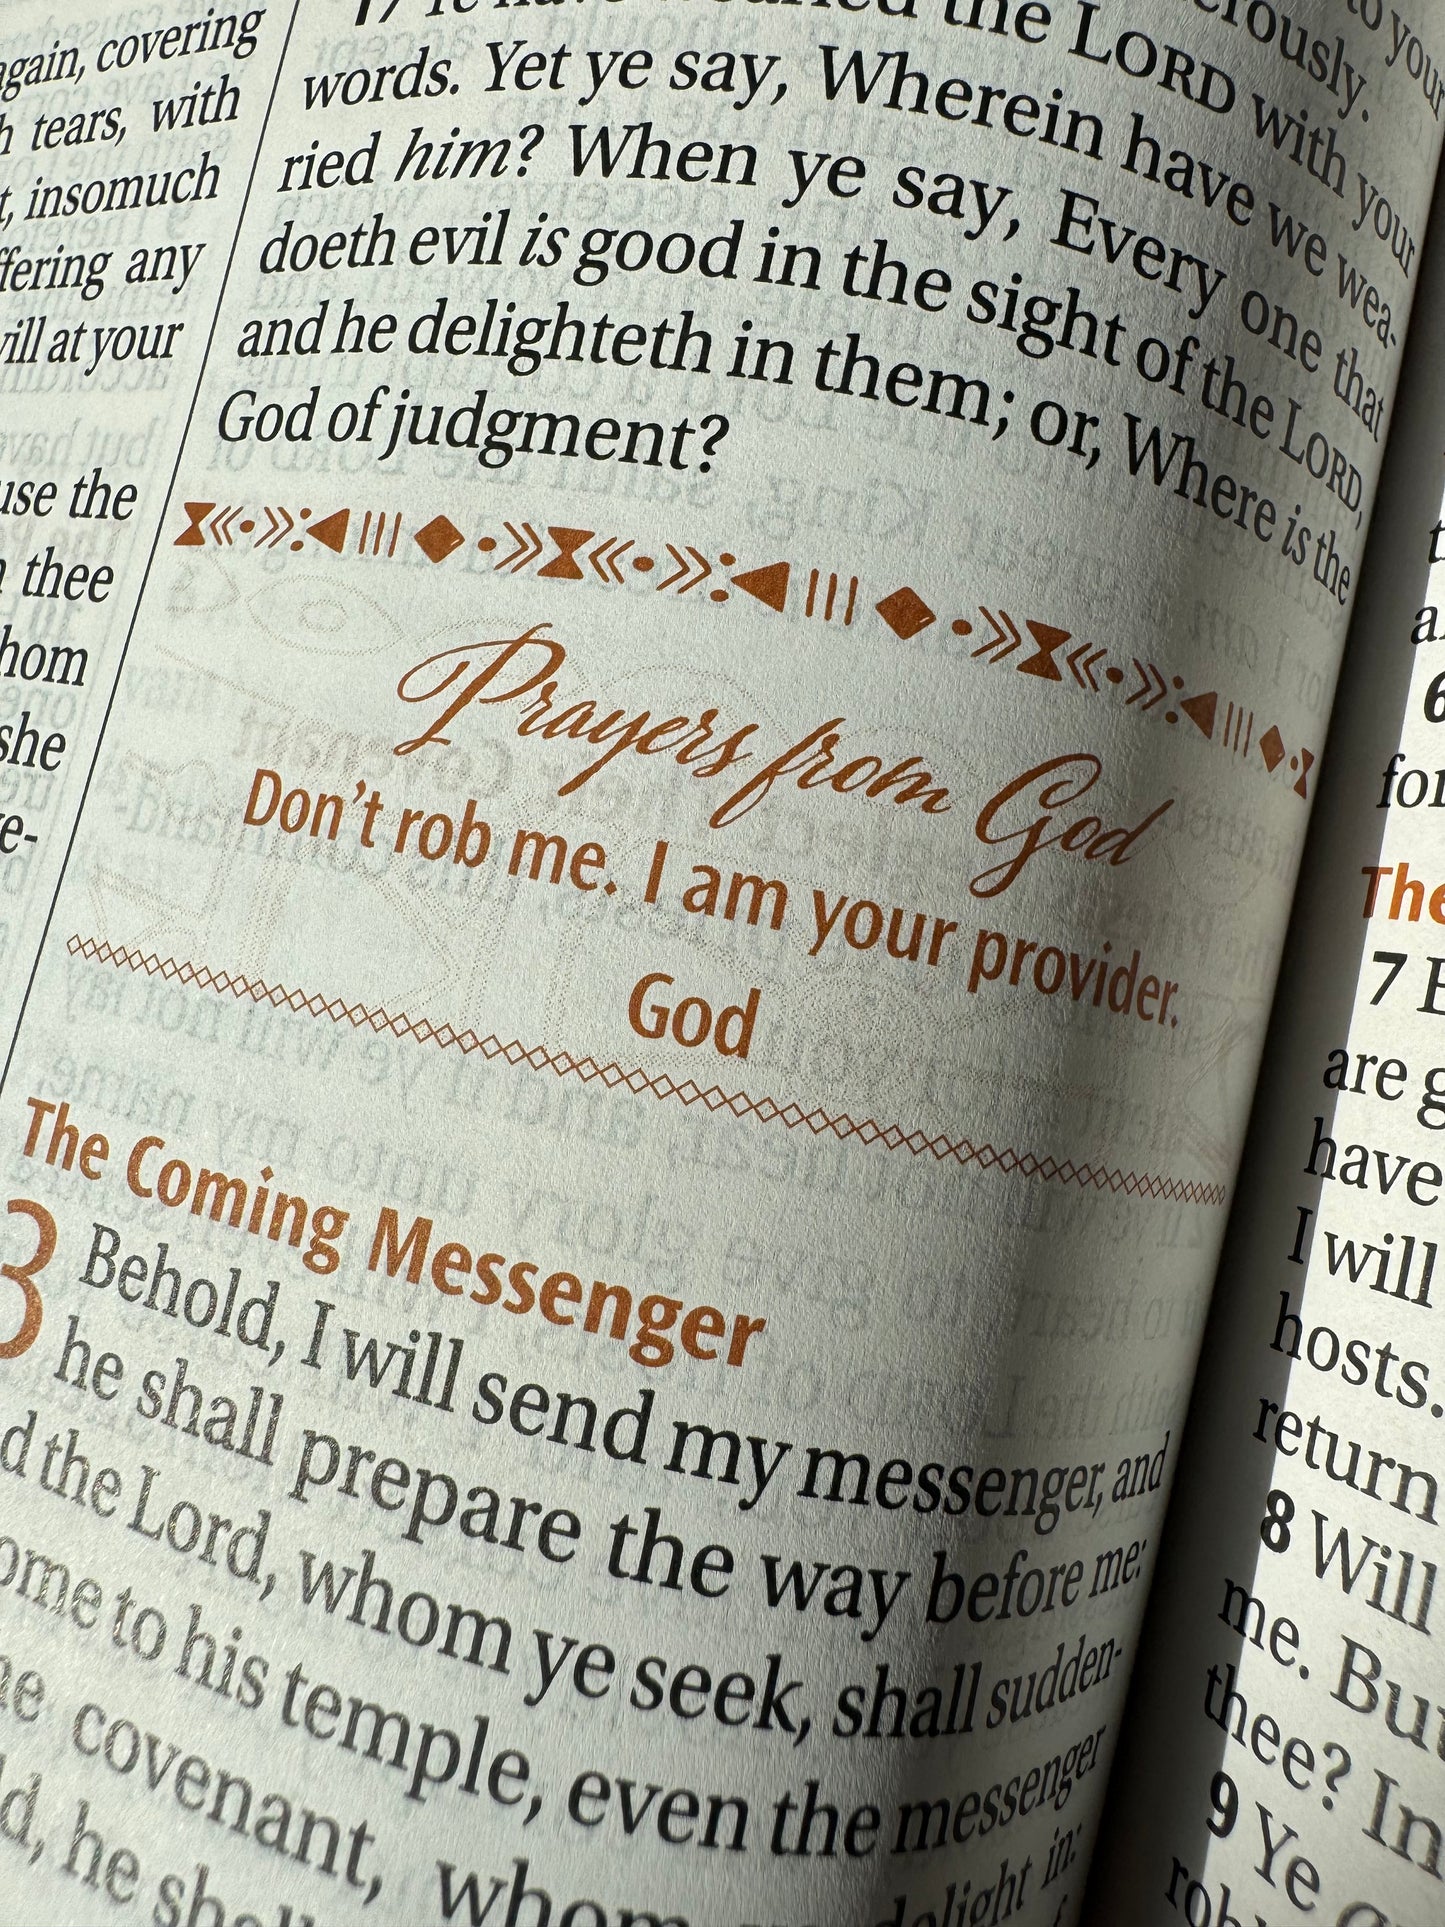 again, covering
tears, with
insomuch
any
at your
use the
thee
she
17 have the LORD with your
words. Yet ye say, Wherein have we wea-
ried him? When ye say, Every one that
doeth evil is good in the sight of the LORD,
and he delighteth in them; or, Where is the
God of judgment?
Prayers from God
Don't rob me. I am your provider.
God
The Coming Messenger
3 Behold, I will send my messenger, and
he shall prepare the way before me:
the Lord, whom ye seek, shall sudden-
to his temple, even the messenger
covenant,
he
delight in:
to your
6
for
The
7
are
have
I will
hosts.
return
8 Will
me. But
thee? In
9 Ye